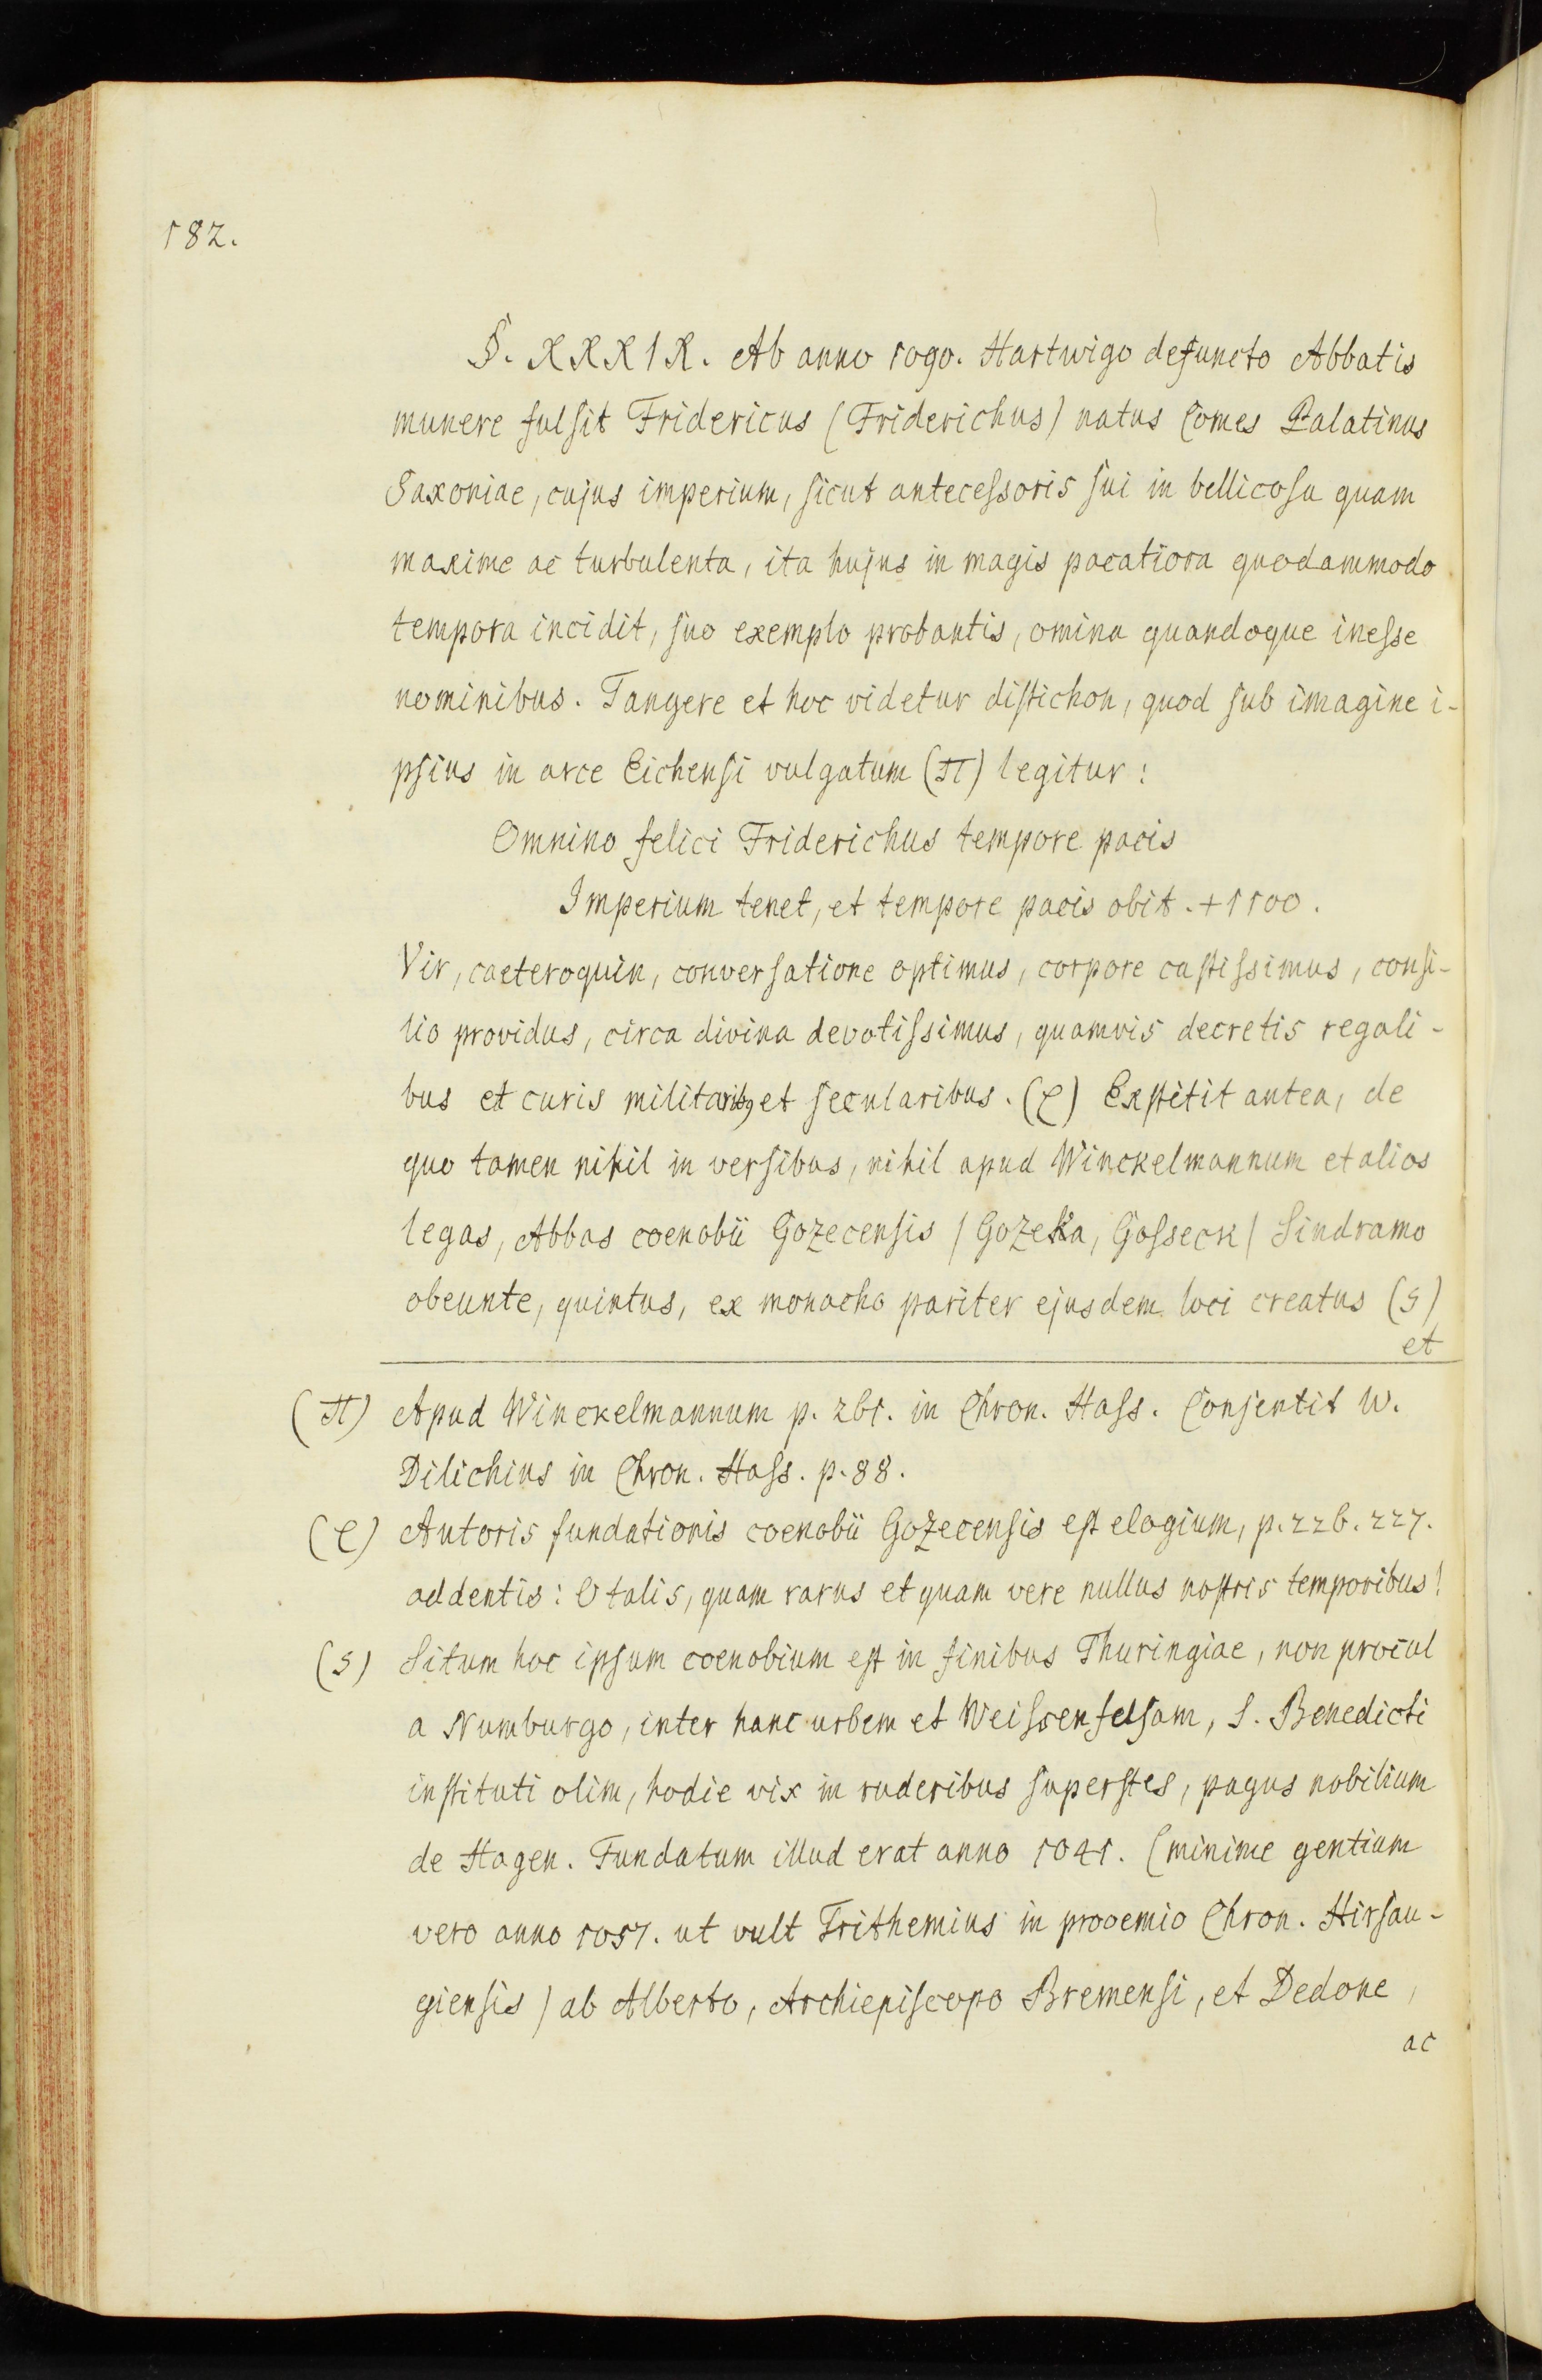 182.
§. XXXIX. Ab anno 1090. Hartwigo defuncto Abbatis
munere fulsit Fridericus (Friderichus) natus Comes Palatinus
Saxoniae, cujus imperium, sicut antecessoris sui in bellicosa quam
maxime ac turbulenta, ita hujus in magis pacatiora quodammodo
tempora incidit, suo exemplo probantis, omina quandoque inesse
nominibus. Tangere et hoc videtur distichon, quod sub imagine i-
psius in arce Eichensi vulgatum (π) legitur:
Omnino felici Friderichus tempore pacis
Imperium tenet, et tempore pacis obit. +1100.
Vir, caeteroquin, conversatione optimus, corpore castissimus, consi-
lio providus, circa divina devotissimus, quamvis decretis regali-
bus et curis militarib9 et secularibus. (ϱ) Exstitit antea, de
quo tamen nihil in versibus, nihil apud Winckelmannum et alios
legas, Abbas coenobii Gozecensis (Gozeka, Gosseck) Sindramo
obeunte, quintus, ex monacho pariter ejusdem loci creatus (ς)
et
(π) Apud Winckelmannum p. 261. in Chron. Hass. Consentit W.
Dilichius in Chron. Hass. p. 88.
(ϱ) Autoris fundationis coenobii Gozecensis est elogium, p. 226. 227.
addentis: O talis, quam rarus et quam vere nullus nostris temporibus!
(ς) Situm hoc ipsum coenobium est in finibus Thuringiae, non procul
a Numburgo, inter hanc urbem et Weissenfelsam, S. Benedicti
instituti olim, hodie vix in ruderibus superstes, pagus nobilium
de Hagen. Fundatum illud erat anno 1041. (minime gentium
vero anno 1057. ut vult Trithemius in prooemio Chron. Hirsau-
giensis) ab Alberto, Archiepiscopo Bremensi, et Dedone,
ac